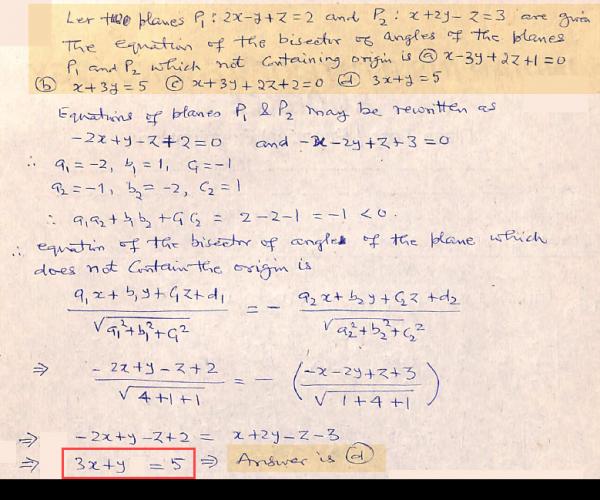 Let two planes P₁: 2x-y+z=2 and P₂: x+2y-z=3 are given
The equation of the bisector of angles of the planes
P₁ and P₂ which not containing origin is (a) x-3y+2z+1=0
(b) x+3y=5 (c) x+3y+2z+2=0 (d) 3x+y=5
Equations of planes P₁ & P₂ may be rewritten as
-2x+y-z+2=0 and -x-2y+z+3=0
∴ a₁=-2, b₁=1, c₁=-1
a₂=-1, b₂=-2, c₂=1
∴ a₁a₂+b₁b₂+c₁c₂ = 2-2-1 = -1 <0.
∴ equation of the bisector of angles of the plane which
does not contain the origin is
(a₁x+b₁y+c₁z+d₁)/√(a₁²+b₁²+c₁²) = - (a₂x+b₂y+c₂z+d₂)/√(a₂²+b₂²+c₂²)
⇒ (-2x+y-z+2)/√(4+1+1) = - ((-x-2y+z+3)/√(1+4+1))
⇒ -2x+y-z+2 = x+2y-z-3
⇒ 3x+y = 5 ⇒ Answer is (d)